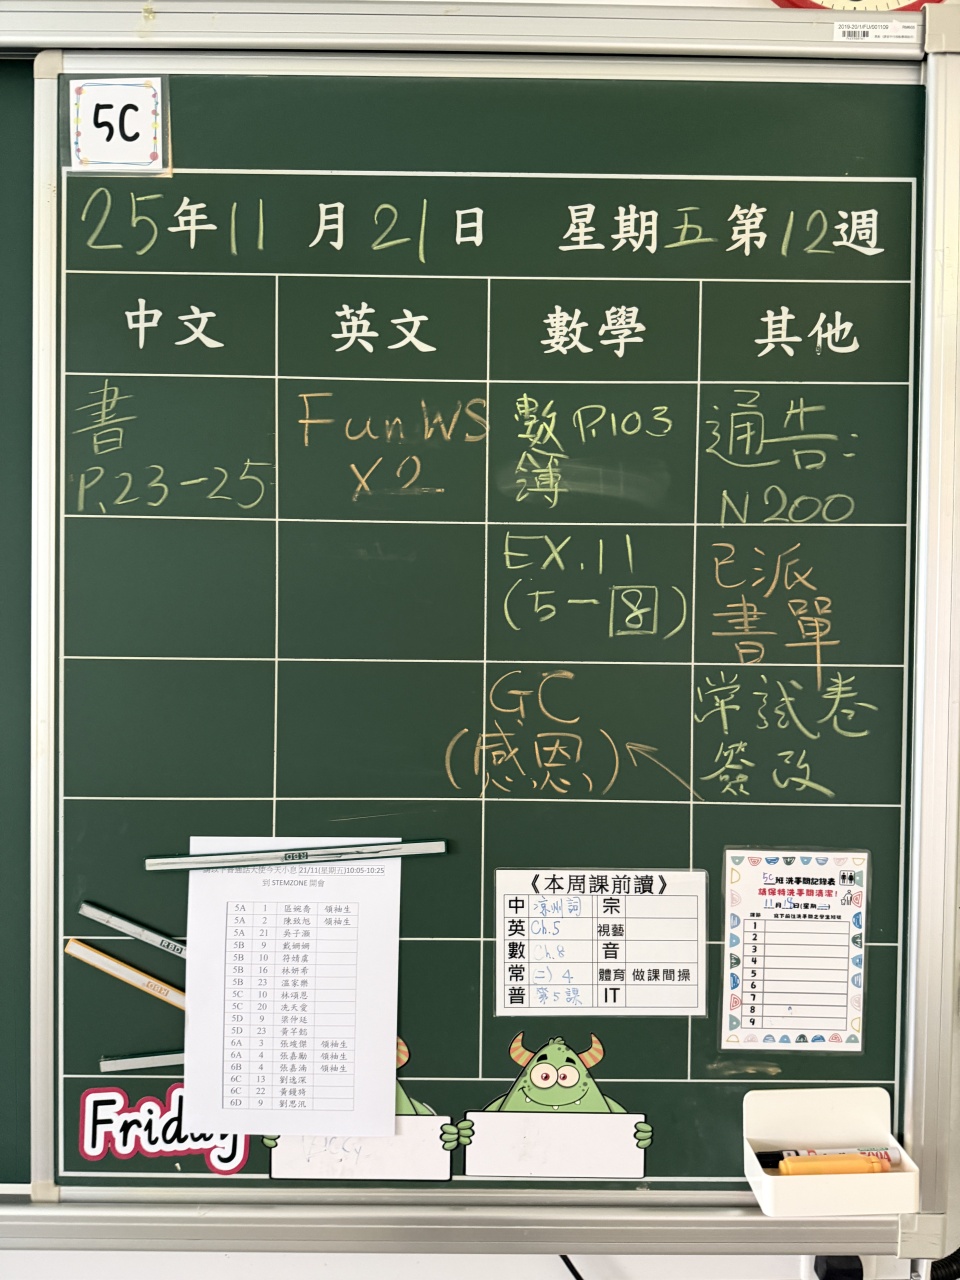 2019-20/1/FU/001109
5C
25年11月21日 星期五第12週
中文 英文 數學 其他
書
P.23-25
Fun WS
X2
數 P.103
簿
通告:
N200
EX.11
(5-8)
已派
書單
GC
(感恩)
常試卷
簽改
RBD
RBD
21/11(星期五)10:05-10:25
到 STEMZONE 開會
5A 1 領袖生
5A 2 領袖生
5A 21
5B 9
5B 10
5B 16 林妍希
5B 23 溫家樂
5C 10 林頌恩
5C 20 冼天愛
5D 9 梁仲廷
5D 23
6A 3 張竣傑 領袖生
6A 4 張嘉勵 領袖生
6B 4 張嘉淯 領袖生
6C 13 劉逸深
6C 22
6D 9 劉思汛
《本周課前讀》
中 涼州詞 宗
英 Ch.5 視藝
數 Ch.8 音
常 (二) 4 體育 做課間操
普 第5課 IT
5C班洗手間記錄表
請保持洗手間清潔!
11月
1
2
3
4
5
6
7
8
9
Friday